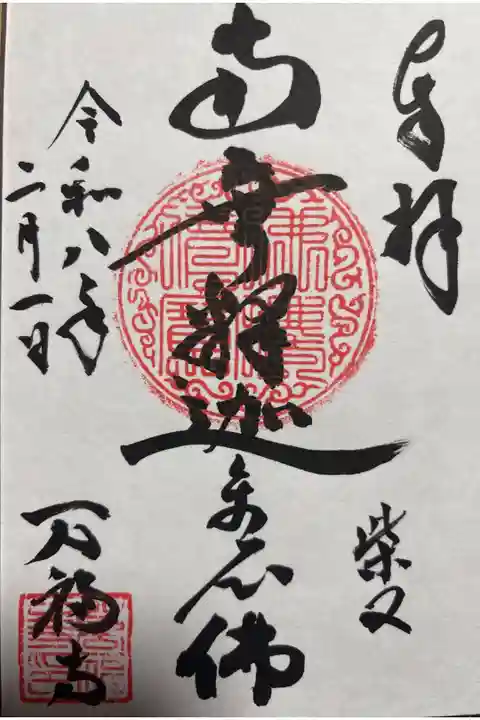 奉拝
柴又
南無釋迦牟尼佛
令和八年
二月一日
万福寺